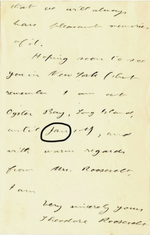 that we will always
have pleasant memories
of it.
Hoping soon to see
you in New York (but
remember I am out
Oyster Bay, Long Island,
until Jan 4th), and
with warm regards
from Mrs. Roosevelt,
I am
Very sincerely yours
Theodore Roosevelt